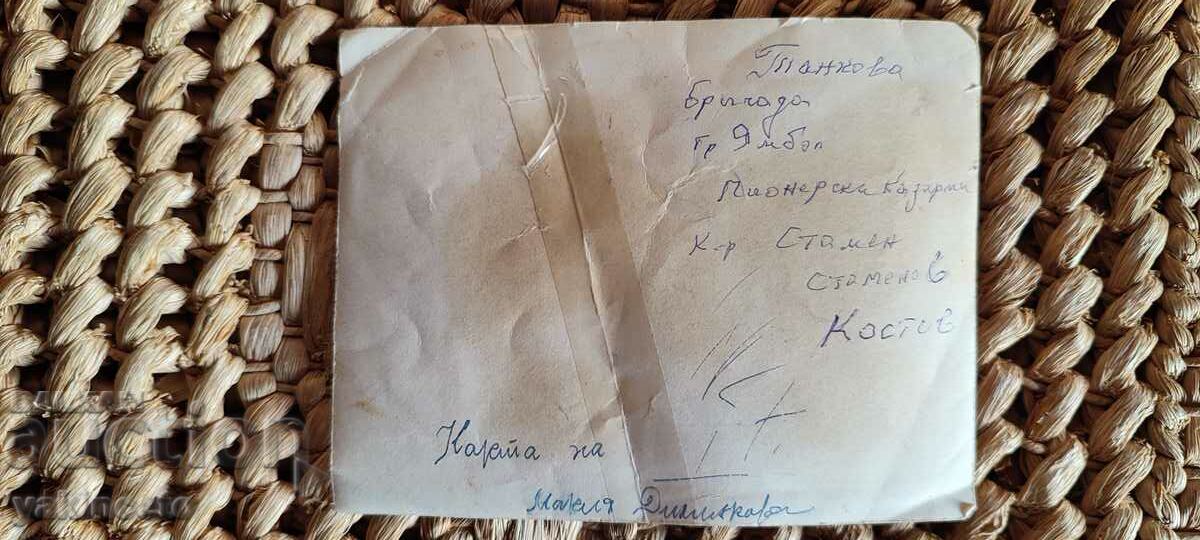 Танкова
бригада
гр Ямбол
Пионерски казарми
К-р Стамен
Стаменов
Костов
Карта на
Мария
BALKAN
auction